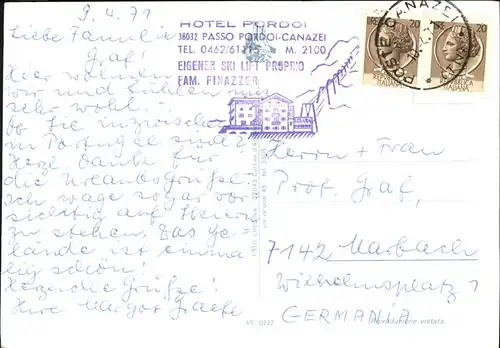 9.4.71
Liebe Familie
Graf!
Hier wohnen
wir und fühlen uns
sehr wohl.
Ob Sie inzwischen
in Portugal sind?
Herzl. Danke für
die Urlaubsgrüße.
Ich wage sogar vor-
sichtig auf Skiern
zu stehen. Das Ge-
lände ist einma-
lig schön!
Herzliche Grüße!
Ihre Margot Graefe
HOTEL PORDOI
38032 PASSO PORDOI-CANAZEI
TEL. 0462/61115 M. 2100
EIGENER SKI LIFT PROPRIO
FAM. FINAZZER
POSTE CANAZEI
20
20
ITALIANA
ITALIANA
Herrn + Frau
Prof. Graf,
7142 Marbach
Wilhelmsplatz 1
GERMANIA
Riproduzione vietata